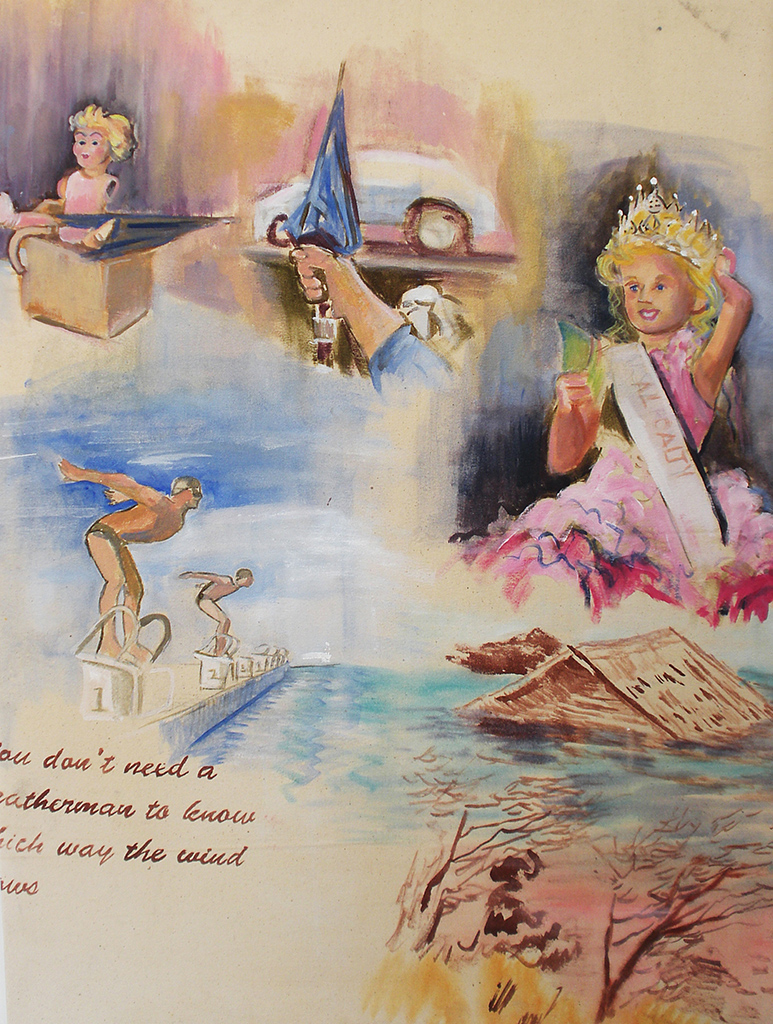 1
2
ou don't need a
eatherman to know
hich way the wind
ows